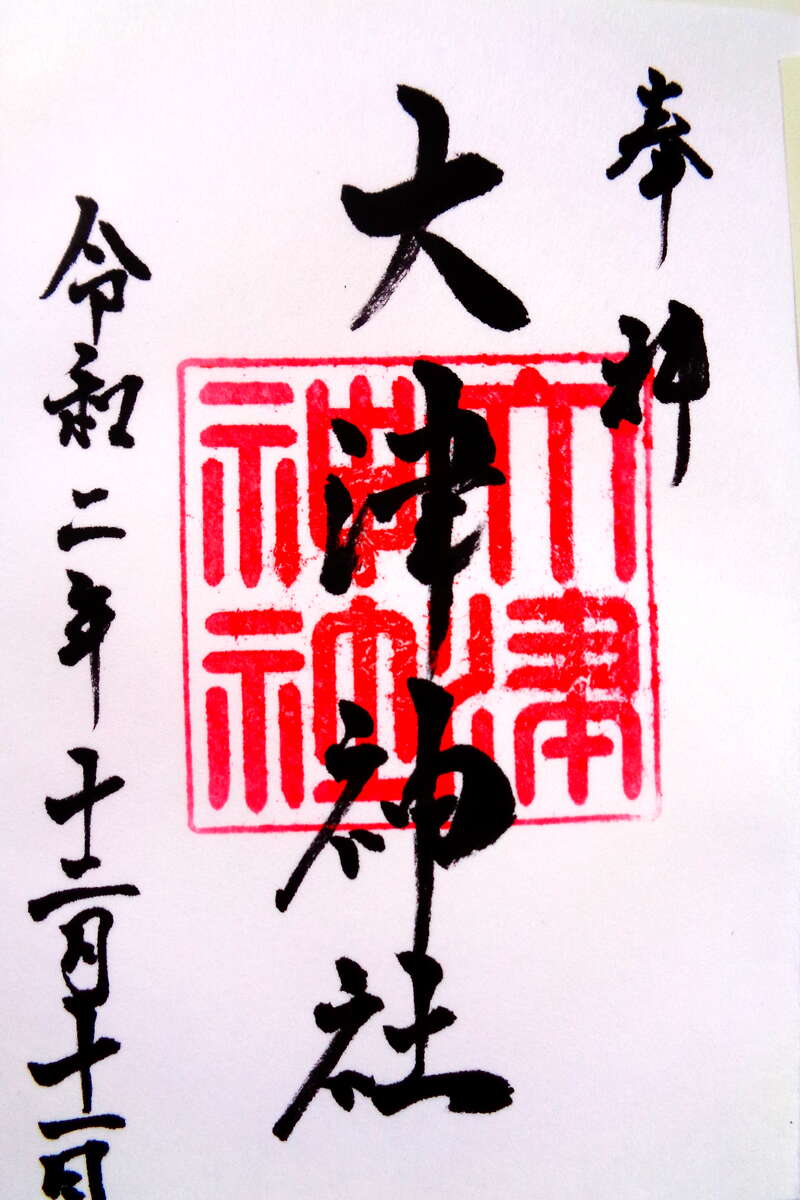 奉拝
大津神社
大津
神社
令和二年十二月十一日